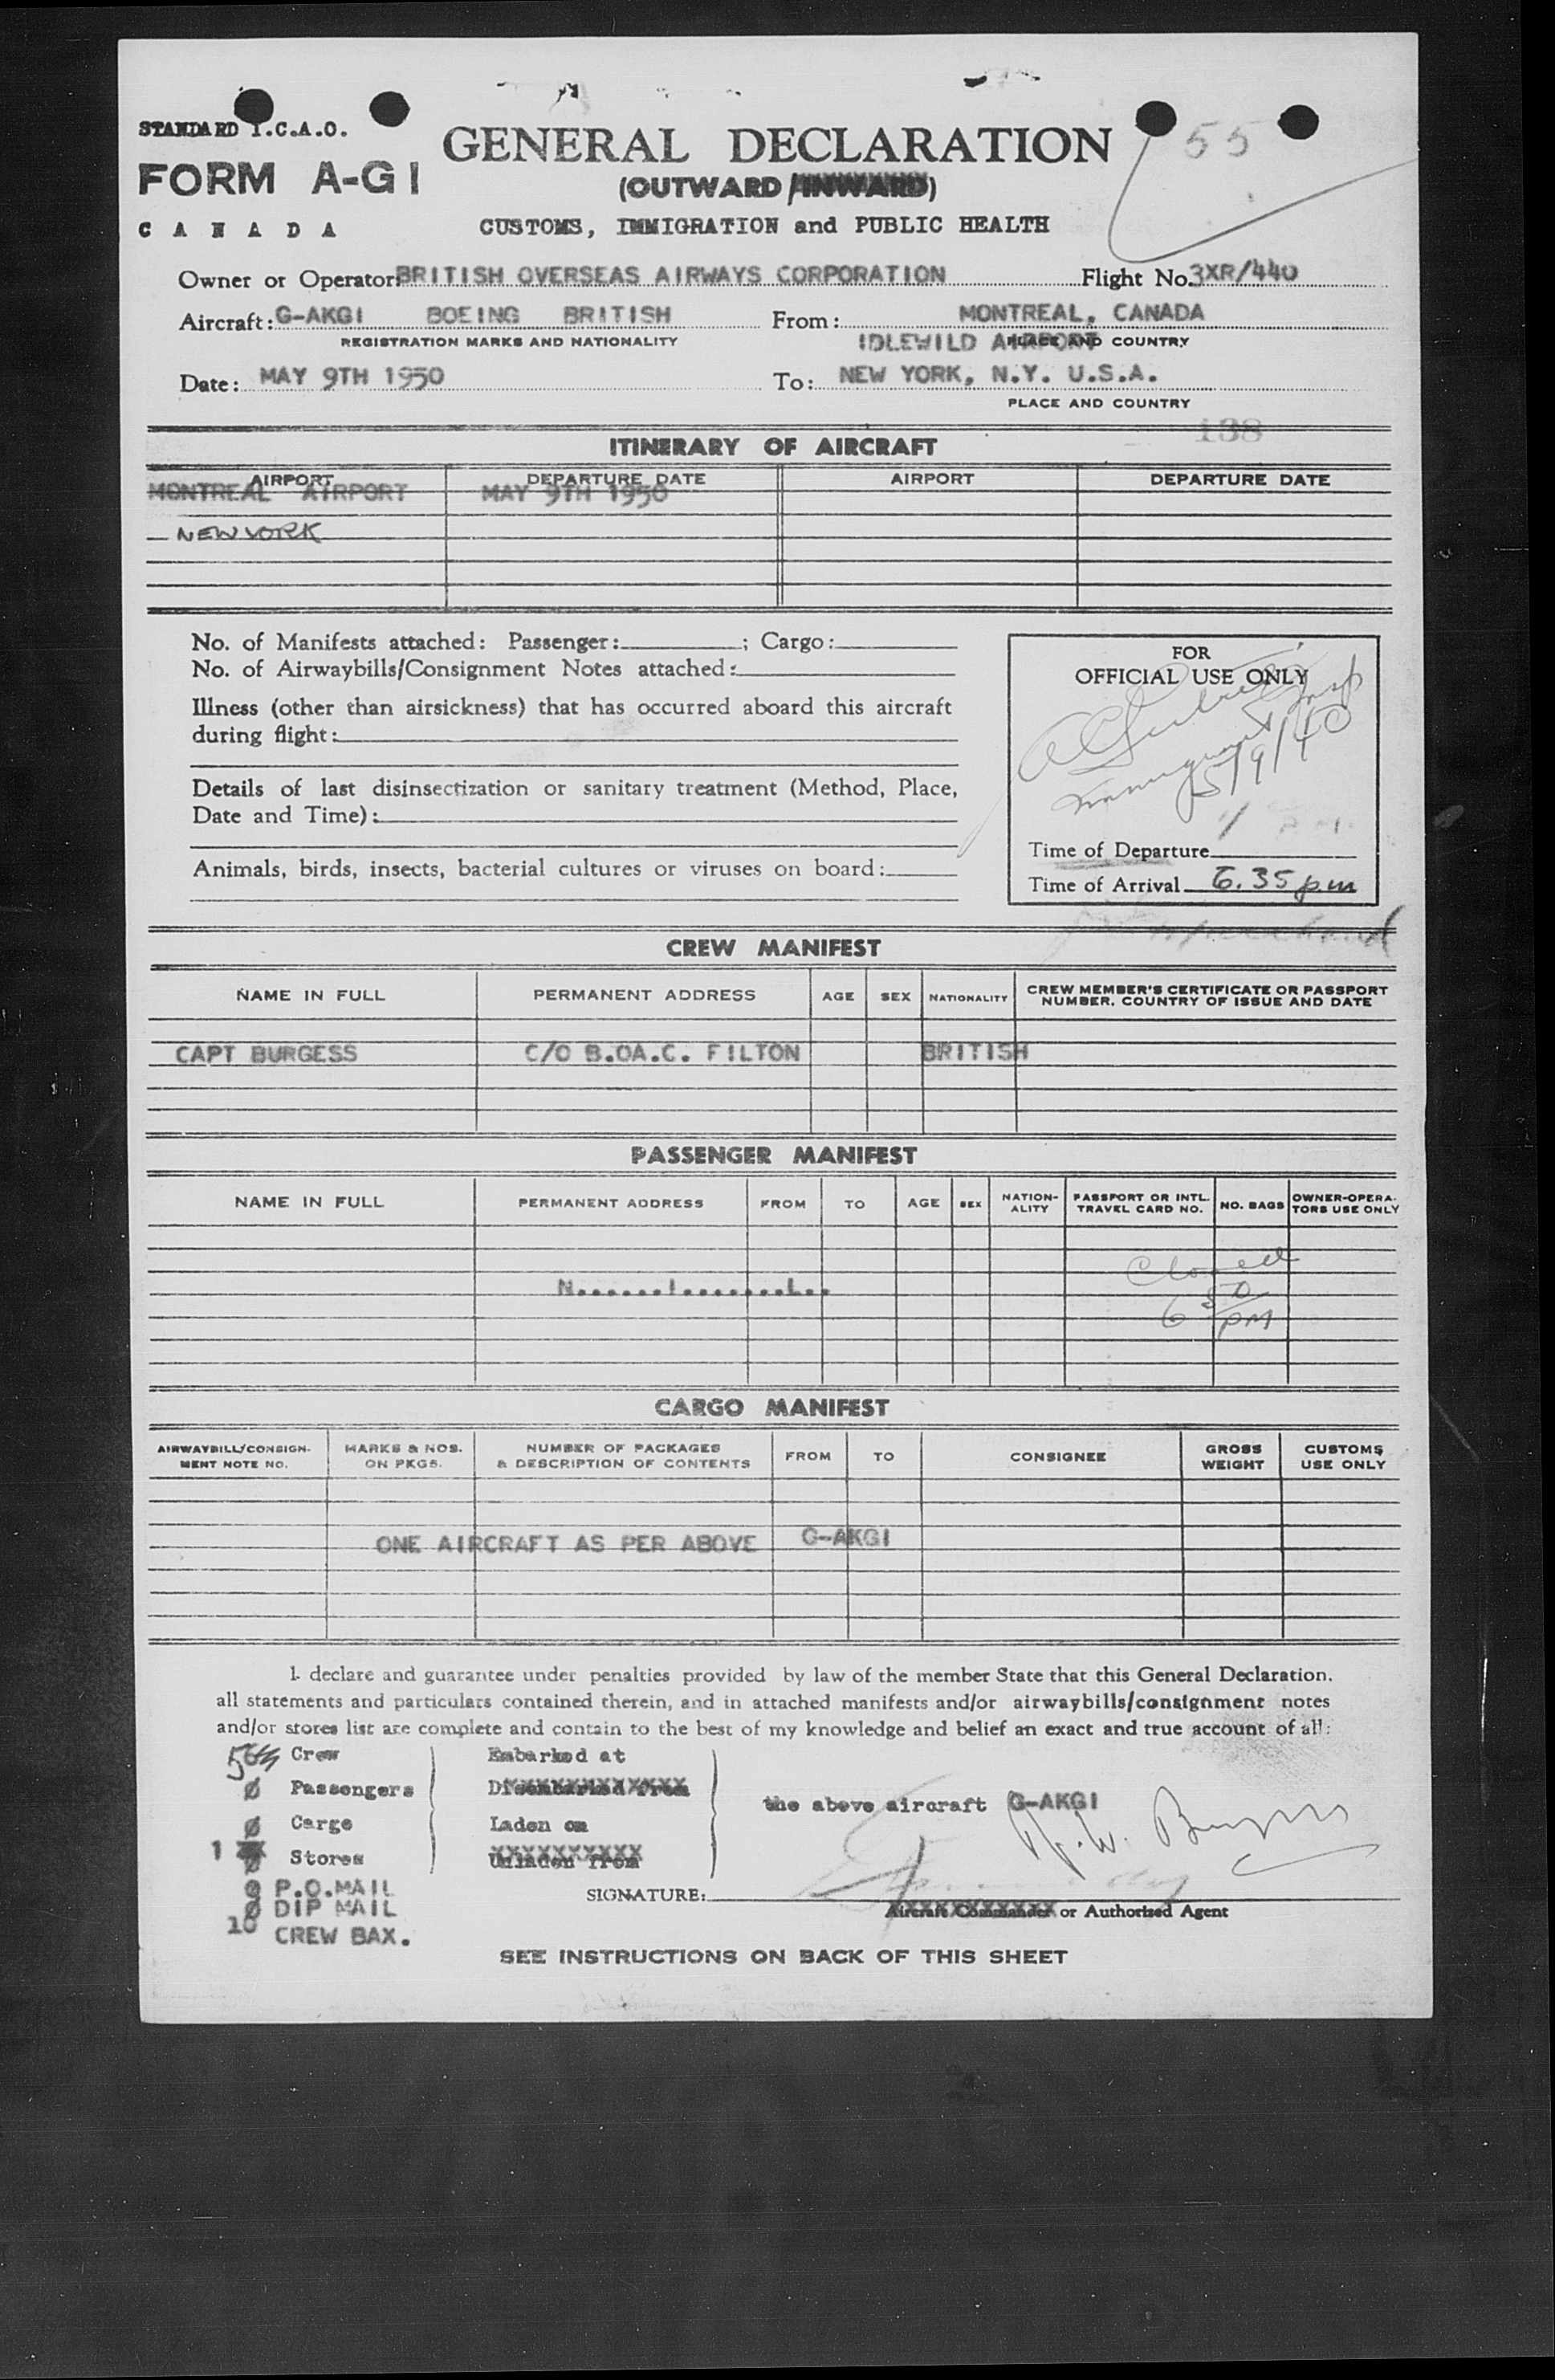 55
STANDARD I.C.A.O.
GENERAL DECLARATION
FORM A-G1
(OUTWARD/INWARD)
CANADA
CUSTOMS, IMMIGRATION and PUBLIC HEALTH
Owner or Operator: BRITISH OVERSEAS AIRWAYS CORPORATION Flight No. 3XR/440
Aircraft: G-AKGI BOEING BRITISH From: MONTREAL, CANADA
REGISTRATION MARKS AND NATIONALITY PLACE AND COUNTRY
IDLEWILD AIRPORT
Date: MAY 9TH 1950 To: NEW YORK, N.Y. U.S.A.
PLACE AND COUNTRY
138
ITINERARY OF AIRCRAFT
AIRPORT DEPARTURE DATE AIRPORT DEPARTURE DATE
MONTREAL AIRPORT MAY 9TH 1950
NEW YORK
No. of Manifests attached: Passenger: ; Cargo:
No. of Airwaybills/Consignment Notes attached:
Illness (other than airsickness) that has occurred aboard this aircraft
during flight:
Details of last disinsectization or sanitary treatment (Method, Place,
Date and Time):
Animals, birds, insects, bacterial cultures or viruses on board:
FOR
OFFICIAL USE ONLY
Insp
Immigrant
5/9/
Time of Departure
Time of Arrival 6.35 p.m
CREW MANIFEST
NAME IN FULL PERMANENT ADDRESS AGE SEX NATIONALITY CREW MEMBER'S CERTIFICATE OR PASSPORT
NUMBER, COUNTRY OF ISSUE AND DATE
CAPT BURGESS C/O B.OA.C. FILTON BRITISH
PASSENGER MANIFEST
NAME IN FULL PERMANENT ADDRESS FROM TO AGE SEX NATION-
ALITY PASSPORT OR INTL.
TRAVEL CARD NO. NO. BAGS OWNER-OPERA-
TORS USE ONLY
N.......I........L..
Closed
6 50 PM
CARGO MANIFEST
AIRWAYBILL/CONSIGN-
MENT NOTE NO. MARKS & NOS.
ON PKGS. NUMBER OF PACKAGES
& DESCRIPTION OF CONTENTS FROM TO CONSIGNEE GROSS
WEIGHT CUSTOMS
USE ONLY
ONE AIRCRAFT AS PER ABOVE G-AKGI
I declare and guarantee under penalties provided by law of the member State that this General Declaration.
all statements and particulars contained therein, and in attached manifests and/or airwaybills/consignment notes
and/or stores list are complete and contain to the best of my knowledge and belief an exact and true account of all:
Crew Embarked at
Ø Passengers Disembarked from
the above aircraft G-AKGI
Ø Cargo Laden on
1 Stores Unladen from
P.O.MAIL
SIGNATURE:
DIP MAIL
Aircraft Commander or Authorised Agent
10 CREW BAX.
SEE INSTRUCTIONS ON BACK OF THIS SHEET